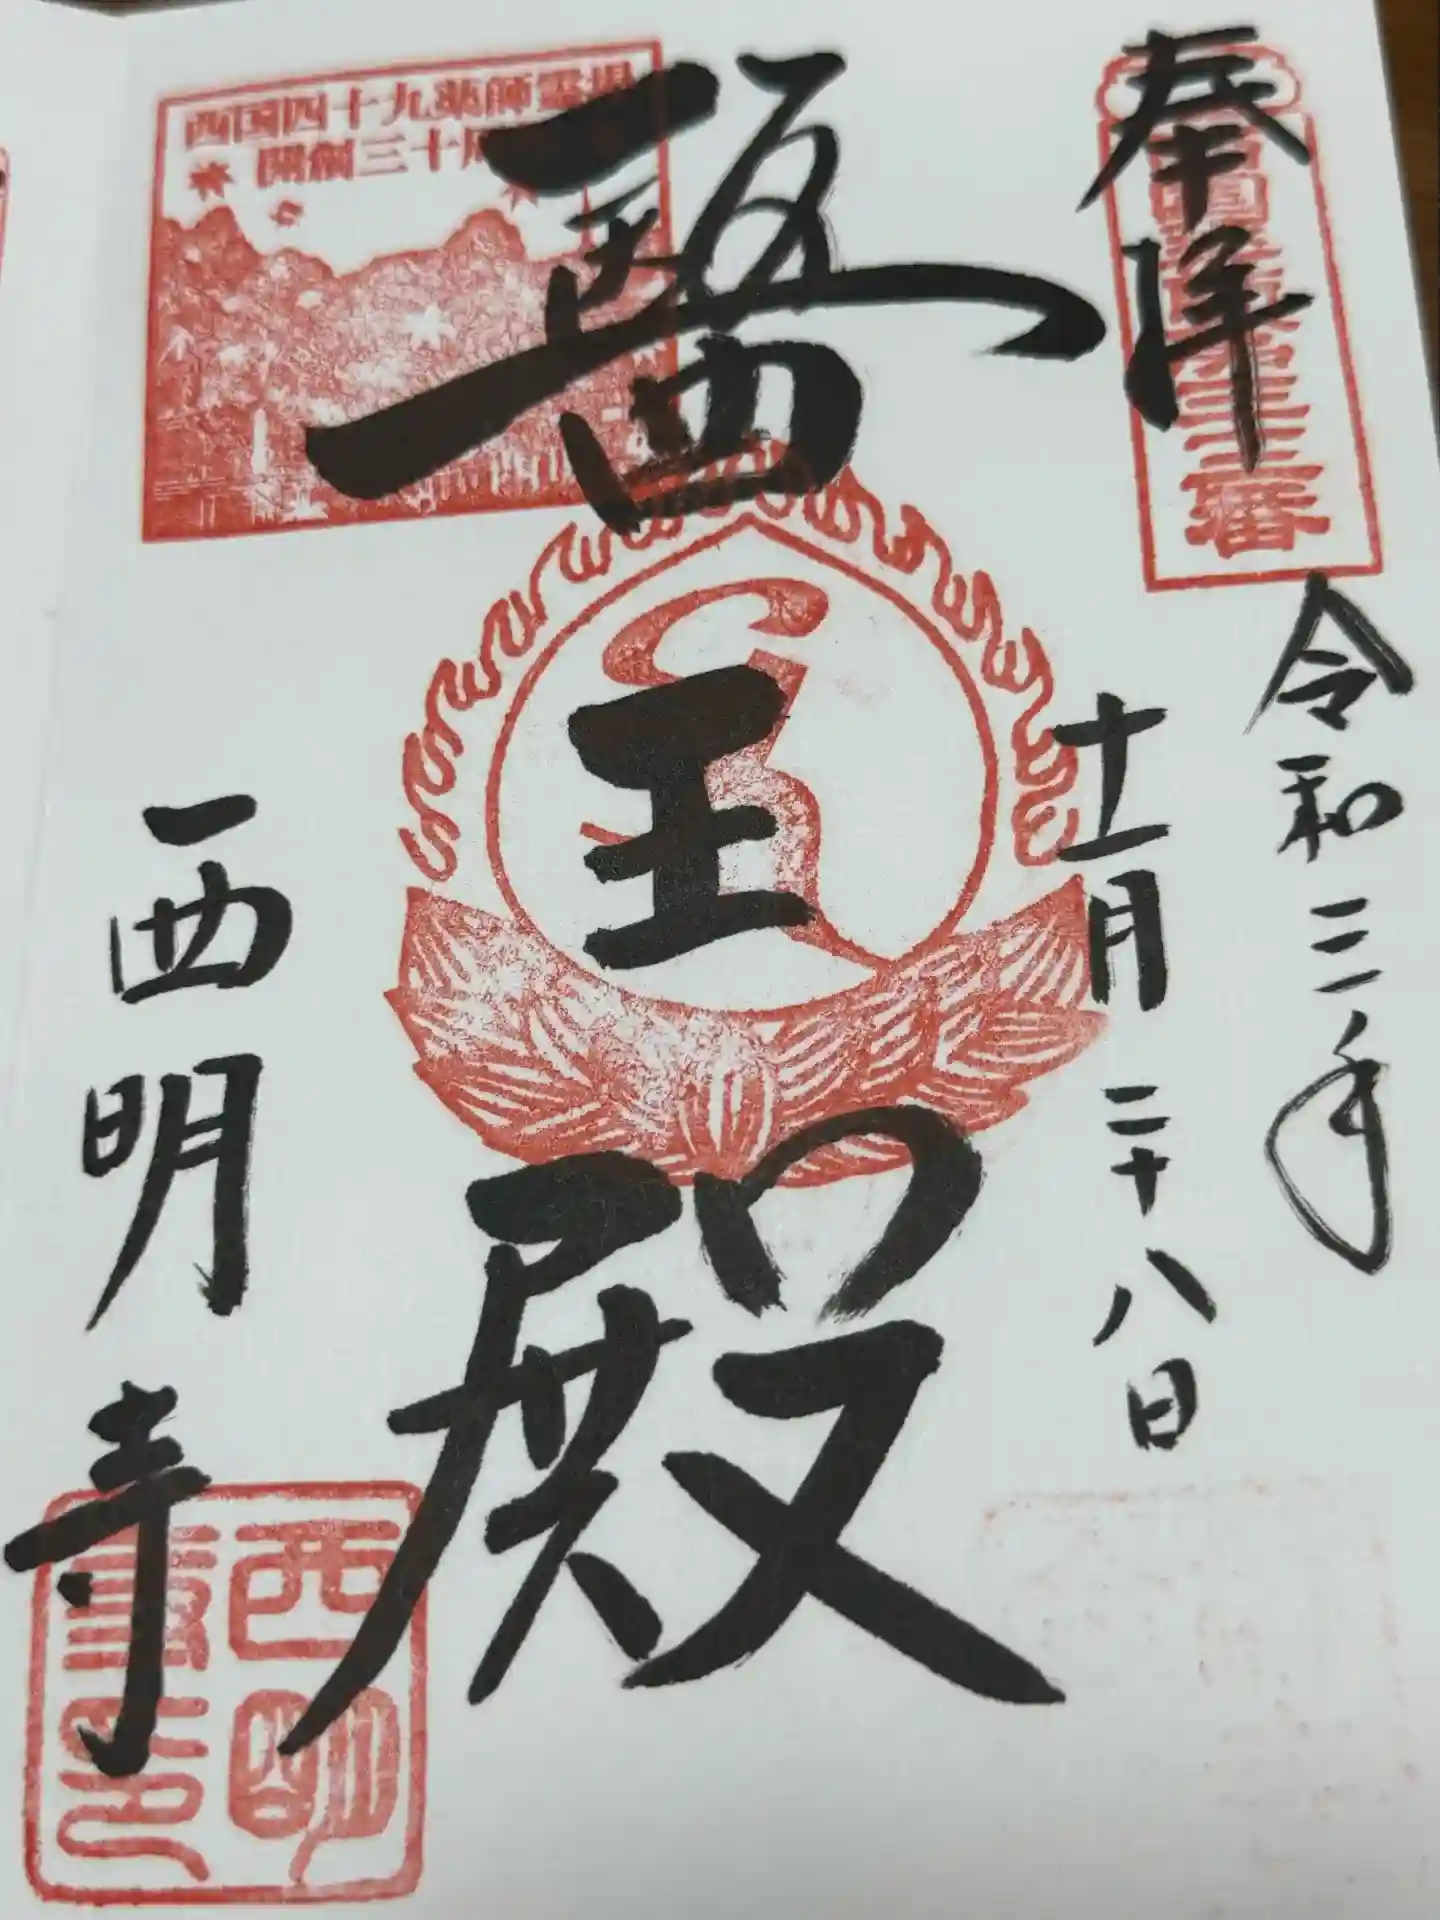 奉拝
令和三年
十一月二十八日
醫王殿
西国四十九薬師霊場
開創三十周
西明寺